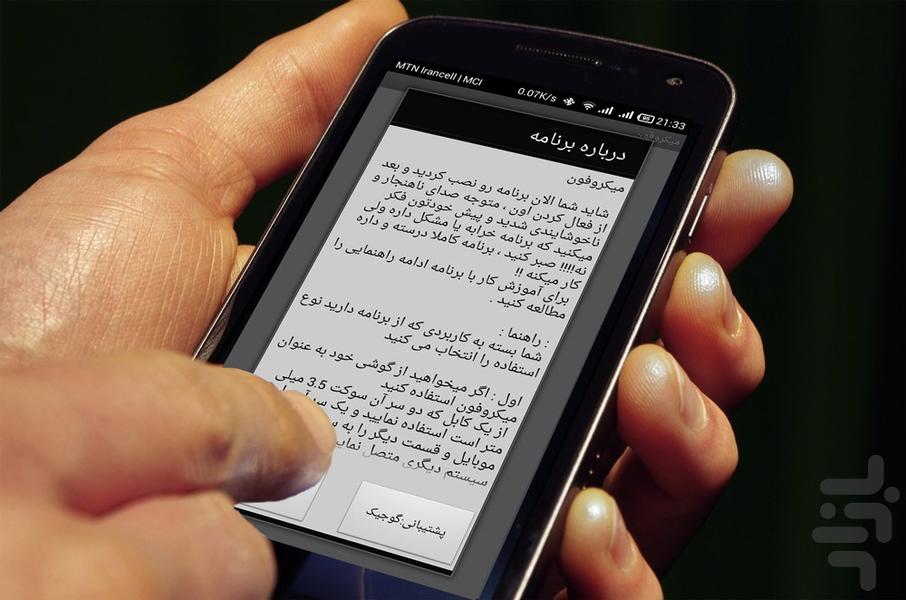 MTN Irancell | MCI
0.07K/s
21:33
میکروفون
درباره برنامه
میکروفون
شاید شما الان برنامه رو نصب کردید و بعد
از فعال کردن اون ، متوجه صدای ناهنجار و
ناخوشایندی شدید و پیش خودتون فکر
میکنید که برنامه خرابه یا مشکل داره ولی
نه!!!! صبر کنید ، برنامه کاملا درسته و داره
کار میکنه !!
برای آموزش کار با برنامه ادامه راهنمایی را
مطالعه کنید .
راهنما :
شما بسته به کاربردی که از برنامه دارید نوع
استفاده را انتخاب می کنید
اول : اگر میخواهید از گوشی خود به عنوان
میکروفون استفاده کنید
از یک کابل که دو سر آن سوکت 3.5 میلی
متر است استفاده نمایید و یک سر آن
موبایل و قسمت دیگر را به
سیستم دیگری متصل
پشتیبانی:گوجیک
بازار